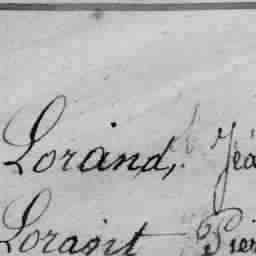 Lorand, Jéa
Lorant Pier